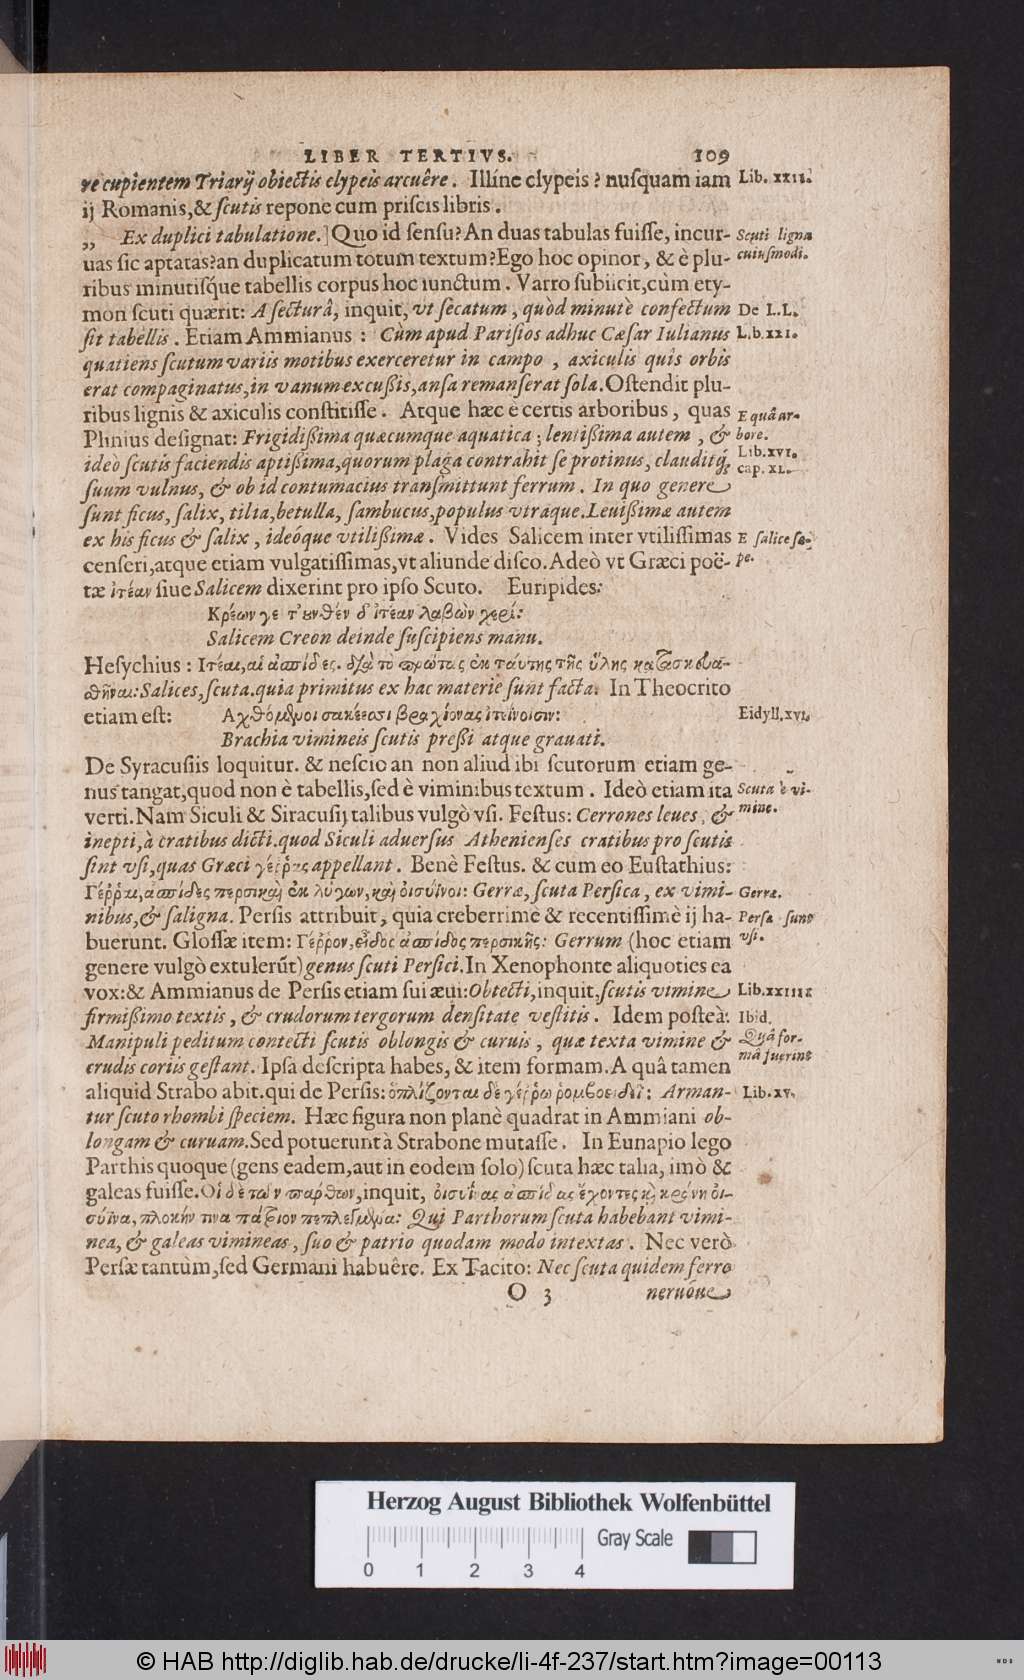 LIBER TERTIVS. 109
re cupientem Triarij obiectis clypeis arcuêre. Illíne clypeis? nusquam iam Lib. XXII.
ij Romanis, & scutis repone cum priscis libris.
„ Ex duplici tabulatione.] Quo id sensu? An duas tabulas fuisse, incur- Scuti lignea
uas sic aptatas? an duplicatum totum textum? Ego hoc opinor, & è plu- cuiusmodi.
ribus minutisq́ue tabellis corpus hoc iunctum. Varro subiicit, cùm ety-
mon scuti quærit: A secturâ, inquit, vt secatum, quòd minutè confectum De L.L.
sit tabellis. Etiam Ammianus: Cùm apud Parisios adhuc Cæsar Iulianus L.b. XXI.
quatiens scutum variis motibus exerceretur in campo, axiculis quis orbis
erat compaginatus, in vanum excußis, ansa remanserat sola. Ostendit plu-
ribus lignis & axiculis constitisse. Atque hæc è certis arboribus, quas E quâ ar-
Plinius designat: Frigidißima quæcumque aquatica; lentißima autem, & bore.
ideò scutis faciendis aptißima, quorum plaga contrahit se protinus, clauditq́; Lib. XVI. cap. XL.
suum vulnus, & ob id contumacius transmittunt ferrum. In quo genere
sunt ficus, salix, tilia, betulla, sambucus, populus vtraque. Leuißimæ autem
ex his ficus & salix, ideóque vtilißimæ. Vides Salicem inter vtilissimas E salice sæ-
censeri, atque etiam vulgatissimas, vt aliunde disco. Adeò vt Græci poë- pe.
tæ ἰτέαν siue Salicem dixerint pro ipso Scuto. Euripides:
Κρέων γε τ' ουνθέν δ' ἰτέαν λαβὼν χερί:
Salicem Creon deinde suscipiens manu.
Hesychius: Ἰτέαι, αἱ ἀσπίδες. διὰ τὸ πρώτας ἐκ ταύτης τῆς ὕλης κατασκευα-
σθῆναι: Salices, scuta. quia primitus ex hac materie sunt facta. In Theocrito
etiam est: Ἀχθόμενοι σακέεσσι βραχίονας ἰτεΐνοισιν: Eidyll. XVI.
Brachia vimineis scutis preßi atque grauati.
De Syracusiis loquitur. & nescio an non aliud ibi scutorum etiam ge-
nus tangat, quod non è tabellis, sed è viminibus textum. Ideò etiam ita Scuta è vi-
verti. Nam Siculi & Siracusij talibus vulgò vsi. Festus: Cerrones leues, & mine.
inepti, à cratibus dicti. quod Siculi aduersus Athenienses cratibus pro scutis
sint vsi, quas Græci γέῤῥας appellant. Benè Festus. & cum eo Eustathius:
Γέῤῥαι, ἀσπίδες περσικαὶ ἐκ λύγων, καὶ οἰσύϊνοι: Gerræ, scuta Persica, ex vimi- Gerræ.
nibus, & saligna. Persis attribuit, quia creberrimè & recentissimè ij ha- Persæ sunt
buerunt. Glossæ item: Γέῤῥον, εἶδος ἀσπίδος περσικῆς: Gerrum (hoc etiam vsi.
genere vulgò extulerũt) genus scuti Persici. In Xenophonte aliquoties ea
vox: & Ammianus de Persis etiam sui æui: Obtecti, inquit, scutis vimine Lib. XXIIII.
firmißimo textis, & crudorum tergorum densitate vestitis. Idem posteà: Ibid.
Manipuli peditum contecti scutis oblongis & curuis, quæ texta vimine & Quâ for-
crudis coriis gestant. Ipsa descripta habes, & item formam. A quâ tamen mâ fuerint
aliquid Strabo abit. qui de Persis: ὁπλίζονται δὲ γέῤῥῳ ῥομβοειδεῖ: Arman- Lib. XV.
tur scuto rhombi speciem. Hæc figura non planè quadrat in Ammiani ob-
longam & curuam. Sed potuerunt à Strabone mutasse. In Eunapio lego
Parthis quoque (gens eadem, aut in eodem solo) scuta hæc talia, imò &
galeas fuisse. Οἱ δὲ τῶν πάρθων, inquit, οἰσυΐνας ἀσπίδας ἔχοντες καὶ κράνη οἰ-
σύϊνα, πλοκήν τινα πάτριον πεπλεγμένα: Qui Parthorum scuta habebant vimi-
nea, & galeas vimineas, suo & patrio quodam modo intextas. Nec verò
Persæ tantùm, sed Germani habuêre. Ex Tacito: Nec scuta quidem ferro
O 3 neruóue
Herzog August Bibliothek Wolfenbüttel
Gray Scale
0 1 2 3 4
© HAB http://diglib.hab.de/drucke/li-4f-237/start.htm?image=00113